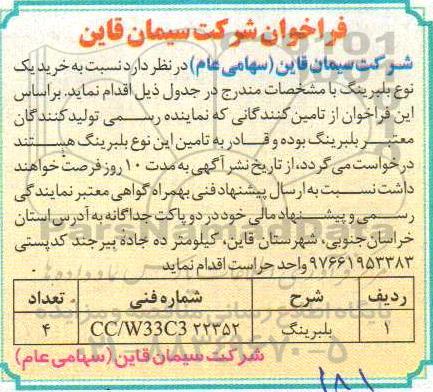 فراخوان شرکت سیمان قاین
شرکت سیمان قاین (سهامی عام) در نظر دارد نسبت به خرید یک
نوع بلبرینگ با مشخصات مندرج در جدول ذیل اقدام نماید. براساس
این فراخوان از تامین کنندگانی که نماینده رسمی تولید کنندگان
معتبر بلبرینگ بوده و قادر به تامین این نوع بلبرینگ هستند
درخواست می گردد، از تاریخ نشر آگهی به مدت ۱۰ روز فرصت خواهند
داشت نسبت به ارسال پیشنهاد فنی بهمراه گواهی معتبر نمایندگی
رسمی و پیشنهاد مالی خود در دو پاکت جداگانه به آدرس استان
خراسان جنوبی، شهرستان قاین، کیلومتر ده جاده بیرجند کدپستی
۹۷۶۶۱۹۵۳۳۸۳ واحد حراست اقدام نماید.
ردیف شرح شماره فنی تعداد
۱ بلبرینگ ۲۲۳۵۲ CC/W33C3 ۴
شرکت سیمان قاین (سهامی عام)